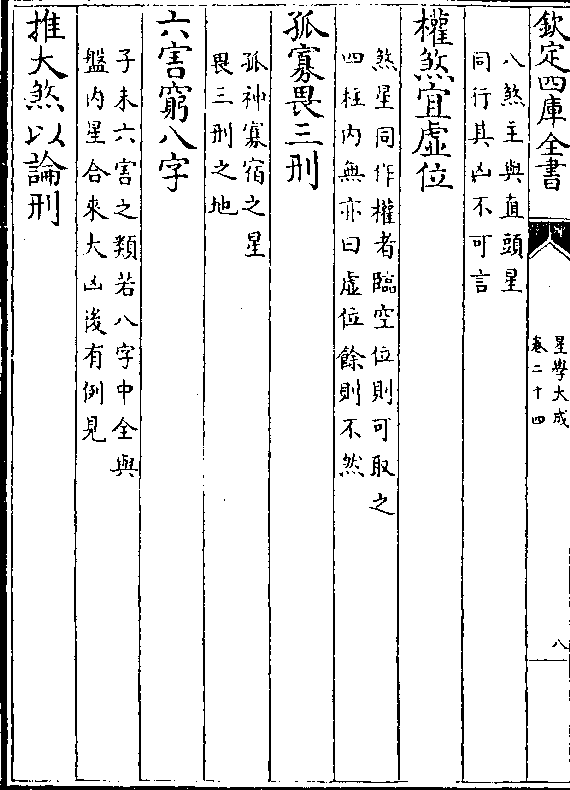 欽定四庫全書
星學大成
卷二十四
八
八煞主與直頭星
同行其凶不可言
權煞宜虛位
煞星同作權者臨空位則可取之
四柱內無亦曰虛位餘則不然
孤寡畏三刑
孤神寡宿之星
畏三刑之地
六害窮八字
子未六害之類若八字中全與
盤內星合來大凶後有例見
推大煞以論刑